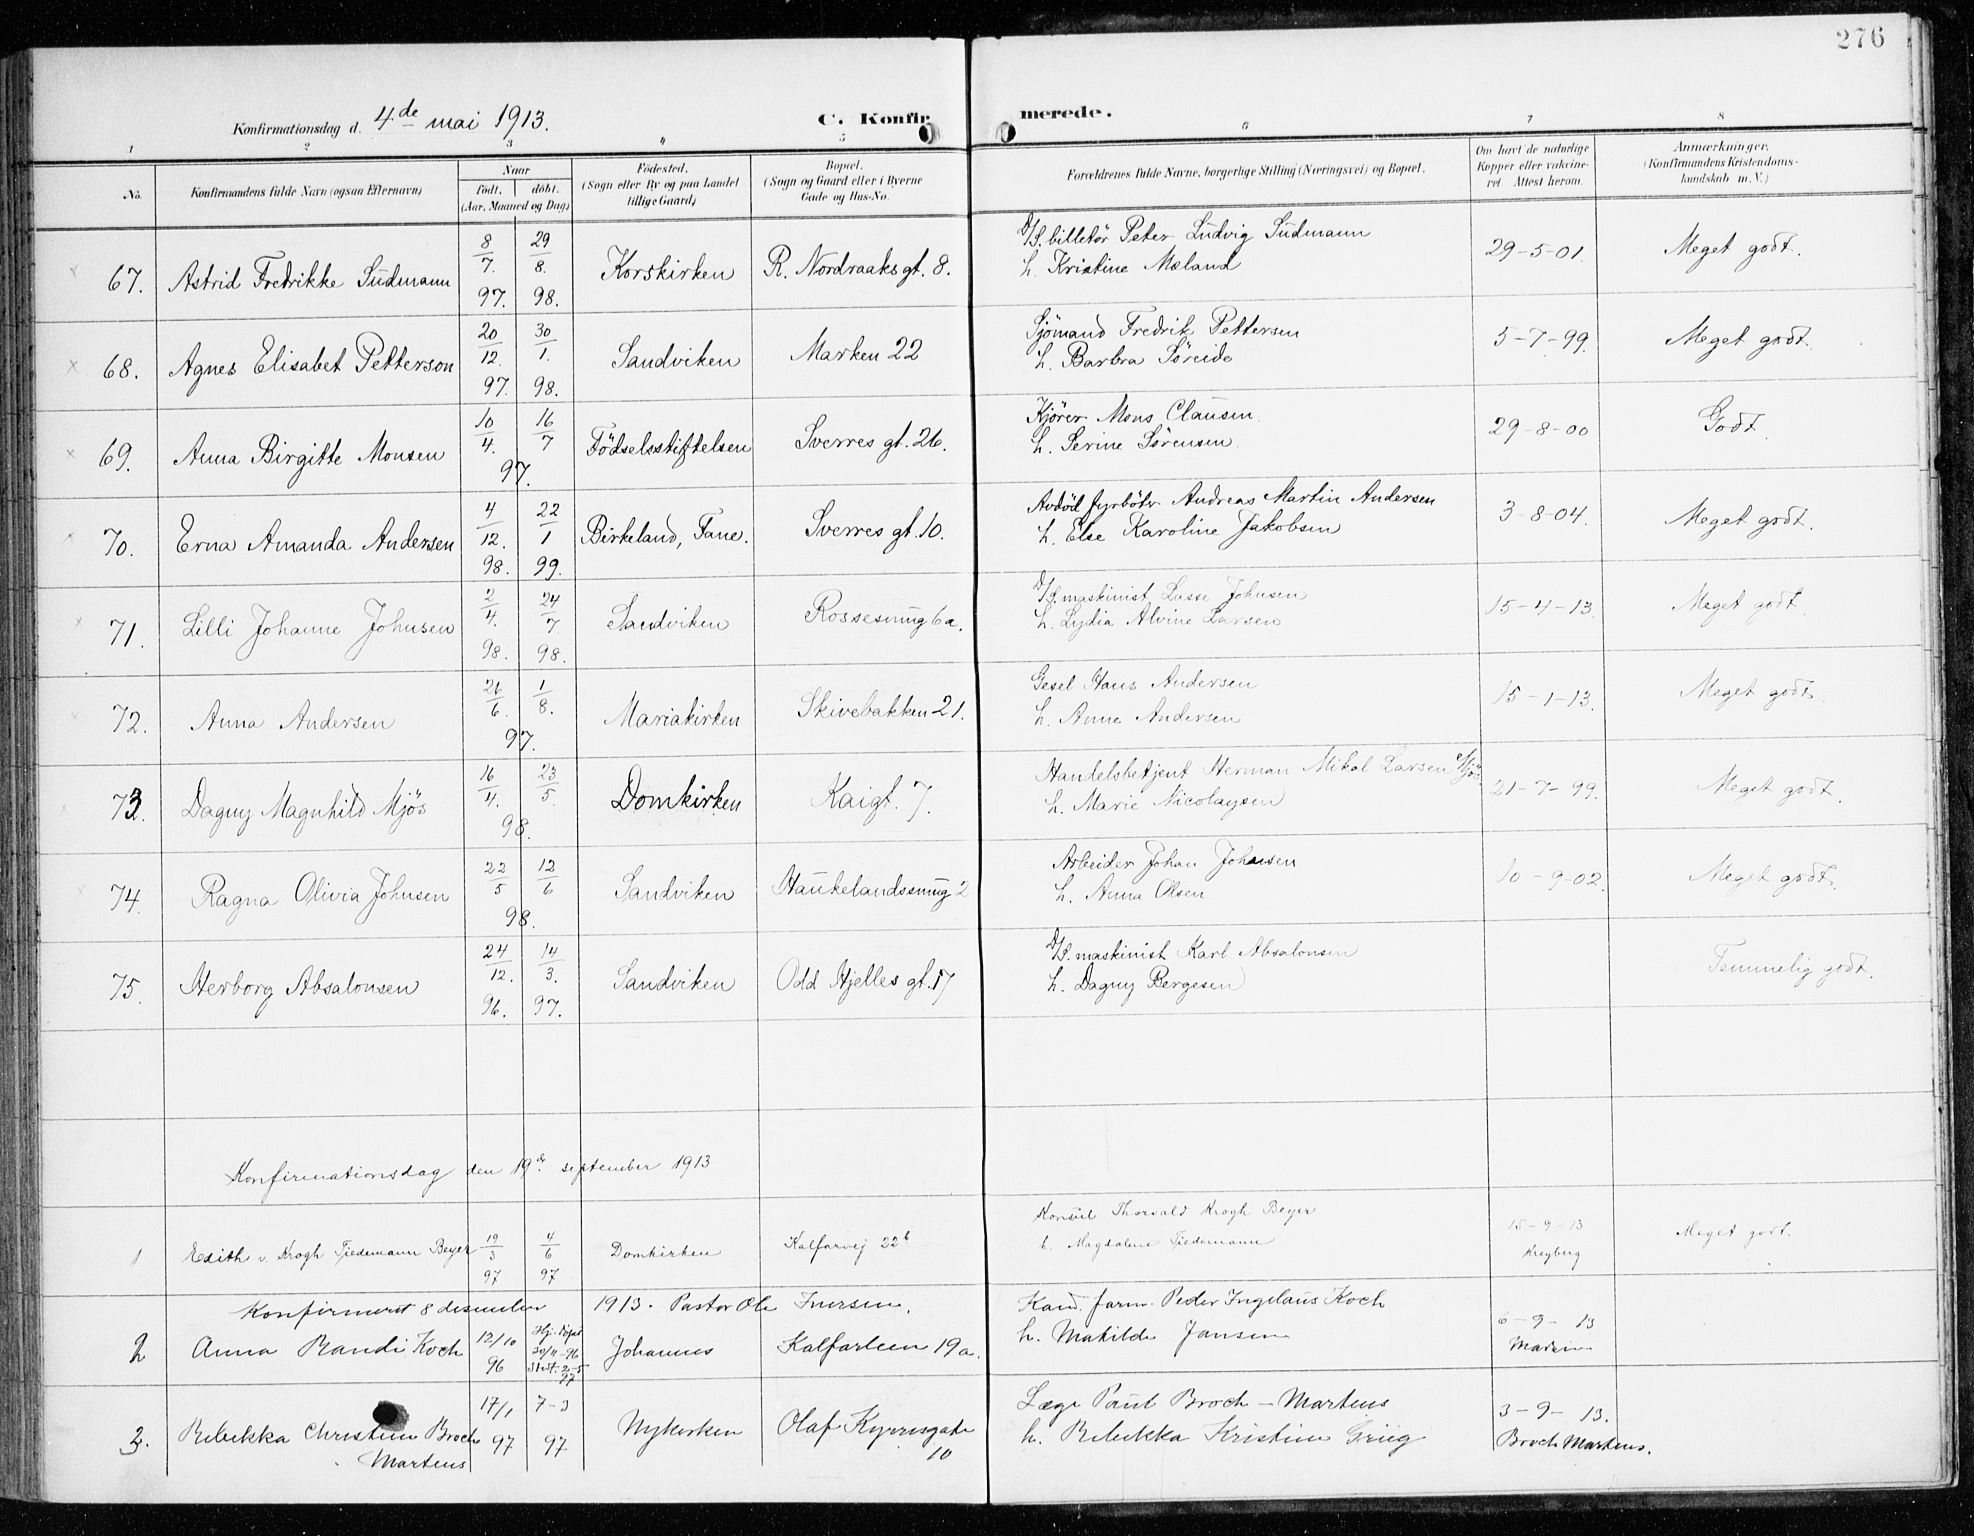 276
Konfirmationsdag d. 4de mai 1913. C. Konfirmerede.
1 2 3 4 5 6 7 8
No. Konfirmandens fulde Navn (ogsaa Efternavn) Naar født. døbt. (Aar, Maaned og Dag) Fødested. (Sogn eller By og paa Landet tillige Gaard) Bopæl. (Sogn og Gaard eller i Byerne Gade og Hus-No. Forældrenes fulde Navne, borgerlige Stilling (Næringsvei) og Bopæl. Om havt de naturlige Kopper eller vakcineret. Attest herom. Anmærkninger. (Konfirmandens Kristendomskundskab m. V.)
67. Astrid Fredrikke Sudmann 8/7. 97. 29/8. 98. Korskirken R. Nordraaks gt. 8. D/S. billetör Peter Ludvig Sudmann
h. Kristine Mæland 29-5-01. Meget godt.
68. Agnes Elisabet Petterson 20/12. 97. 30/1. 98. Sandviken Marken 22 Sjömand Fredrik Pettersen
h. Barbra Söreide 5-7-99. Meget godt.
69. Anna Birgitte Monsen 10/4. 16/7 97. Födselsstiftelsen Sverres gt. 26. Kjörer Mons Clausen
h. Serine Sörensen. 29-8-00 Godt.
70. Erna Amanda Andersen 4/12. 98. 22/1 99. Birkeland, Fane. Sverres gt. 10. Avdöd fyrböter Andreas Martin Andersen
h. Else Karoline Jakobsen 3-8-04. Meget godt.
71. Lilli Johanne Johnsen 2/4. 98. 24/7. 98. Sandviken Rossesmug 6a. D/S. maskinist Lasse Johnsen
h. Lydia Alvine Larsen 15-4-13. Meget godt
72. Anna Andersen 26/6. 1/8. 97. Mariakirken Skivebakken 21. Gesel Hans Andersen
h. Anne Andersen 15-1-13. Meget godt.
73. Dagny Magnhild Mjös 16/4. 23/5. 98. Domkirken Kaigt. 7. Handelsbetjent Herman Mikal Larsen Mjös
h. Marie Nicolaysen 21-7-99. Meget godt.
74. Ragna Olivia Johnsen 22/5 12/6 98. Sandviken Haukelandssmug 2 Arbeider Johan Johnsen
h. Anna Olsen 10-9-02. Meget godt.
75. Herborg Absalonsen 24/12. 96. 14/3. 97. Sandviken Odd Hjelles gt. 17 D/S. maskinist Karl Absalonsen
h. Dagny Bergesen Temmelig godt.
Konfirmationsdag den 19de september 1913
1 Edith v. Krogh Tiedemann Beyer 19/3 97 4/6 97 Domkirken Kalfarvej 22b Konsul Thorvald Krogh Beyer
h. Magdalene Tiedemann 15-9-13 Kreyberg Meget godt.
Konfirmeret 8 desember 1913. Pastor Ole Iversen.
2 Anna Randi Koch 12/10 96 Hj. döpt 20/11-96 Stst. 2-5 97 Johannes Kalfarlien 19a. Kand. farm. Peder Ingelaus Koch
h. Matilde Jansen 6-9-13
3. Rebekka Christine Broch Martens 17/1 97 7-3 97 Nykirken Olaf Kyrresgate 10 Læge Paul Broch-Martens
h. Rebekka Kristine Grieg 3-9-13. Broch Martens.